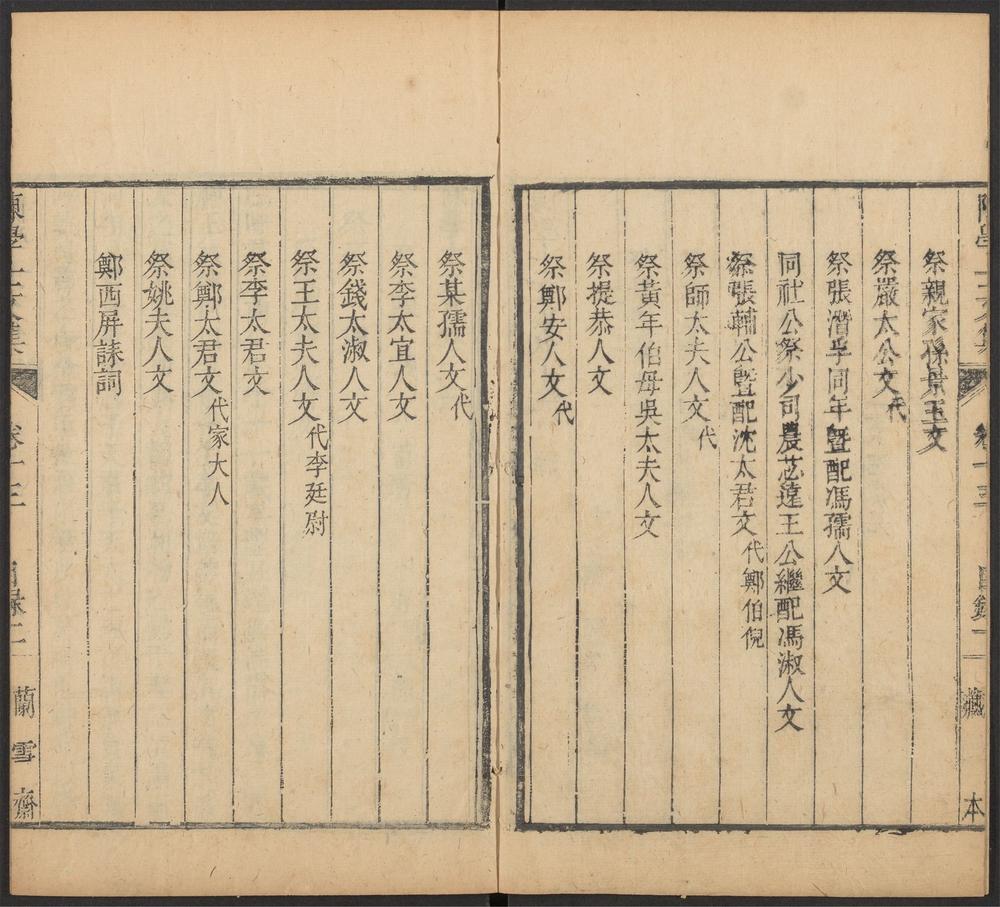 祭親家孫景玉文
祭嚴太公文代
祭張濳孚同年曁配馮孺人文
同社公祭少司農芯遠王公繼配馮淑人文
祭張輔公曁配沈太君文代鄭伯倪
祭師太夫人文代
祭黃年伯母吳太夫人文
祭提恭人文
祭鄭安人文代
卷十三 目錄一 藏本
祭某孺人文代
祭李太宜人文
祭錢太淑人文
祭王太夫人文代李廷尉
祭李太君文
祭鄭太君文代家大人
祭姚夫人文
鄭西屏誄詞
卷十三 目錄二 蘭雪齋